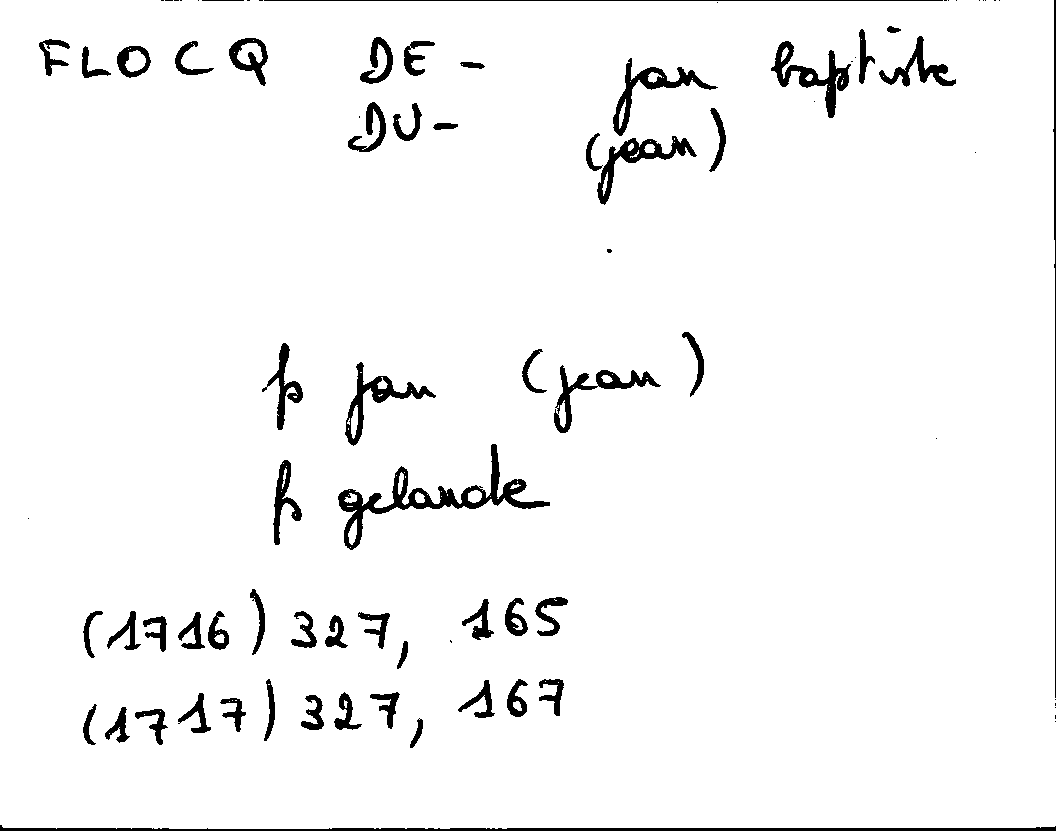 FLOCQ DE - jan baptiste
DU - (jean)
p jan (jean)
p gelande
(1716) 327, 165
(1717) 327, 167